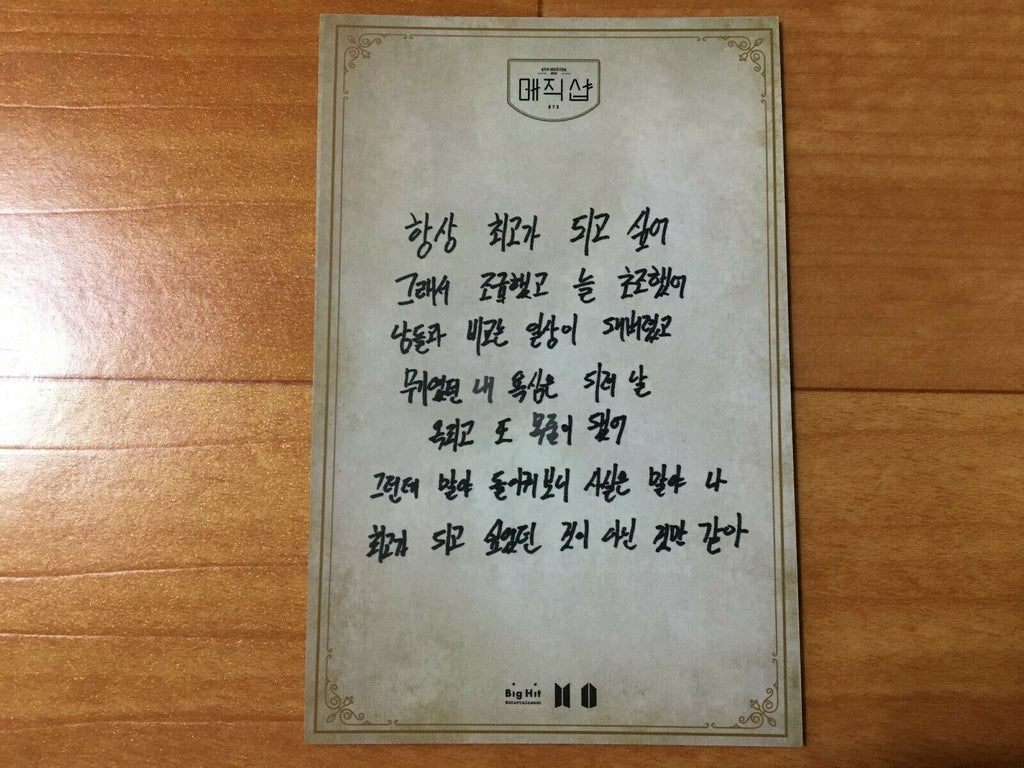 5TH MUSTER
매직샵
BTS
항상 최고가 되고 싶어
그래서 조급했고 늘 초조했어
남들과 비교는 일상이 돼버렸고
무기였던 내 욕심은 되려 날
옥죄고 또 목줄이 됐어
그런데 말야 돌이켜보니 사실은 말야 나
최고가 되고 싶었던 것이 아닌 것만 같아
Big Hit
Entertainment